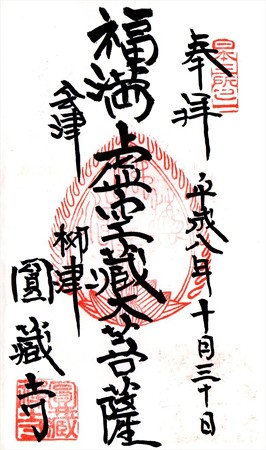 奉拝
平成八年十月三十日
福満虚空蔵大菩薩
会津
柳津
圓藏寺